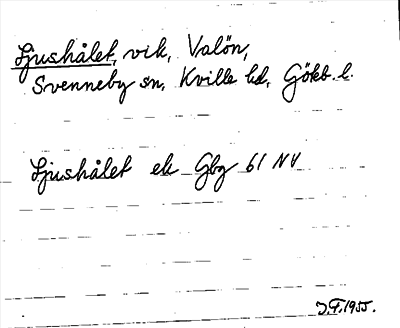 Ljushålet, vik, Valön,
Svenneby sn, Kville hd, Götb. l.
Ljushålet ek Gbg 61 NV
J.F. 1955.